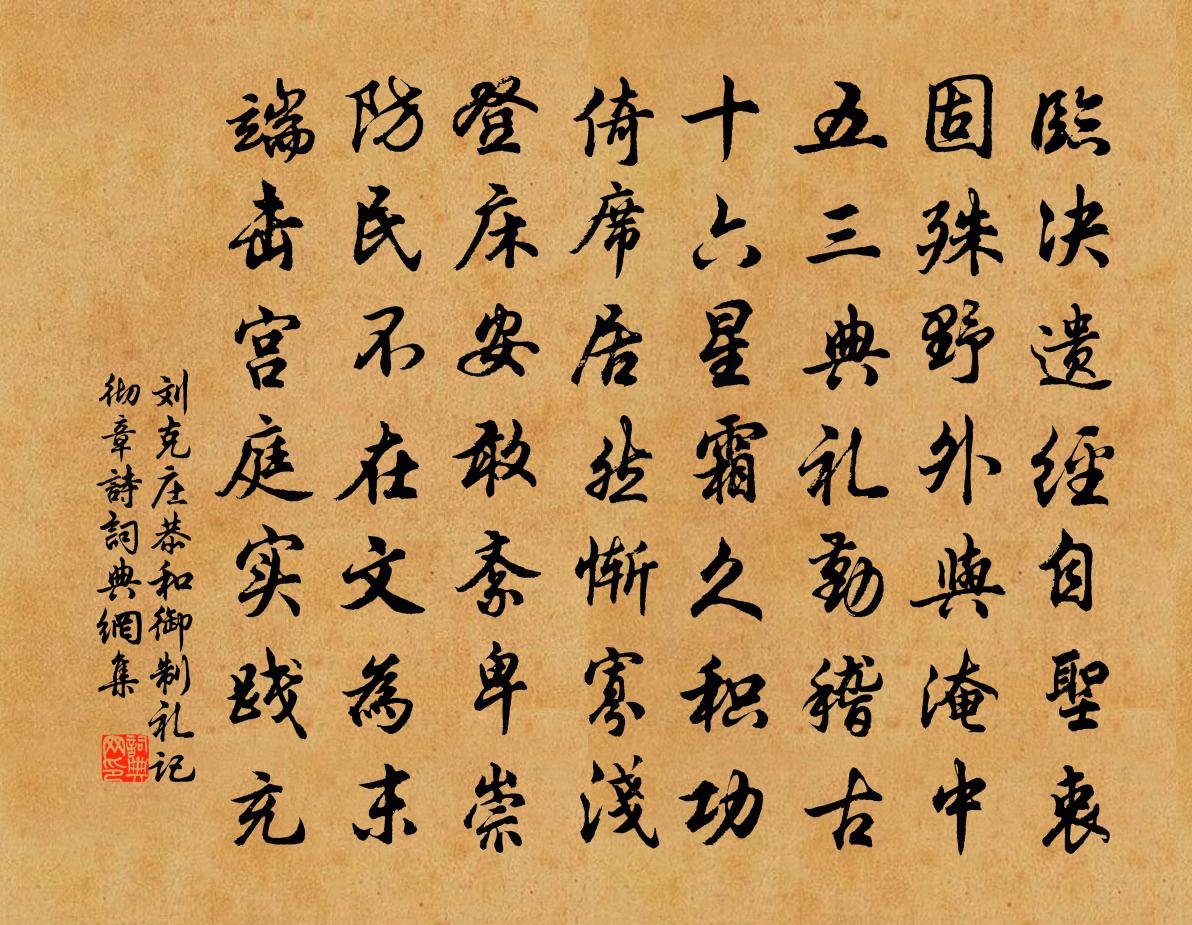 臨决遗經自聖衷
固殊野外與淹中
五三典礼勤稽古
十六星霜久积功
倚席居然惭寡淺
登床安敢紊卑崇
防民不在文為末
端击宫庭实践充
刘克庄恭和御制礼记
彻章詩詞典網集
詞典
网印